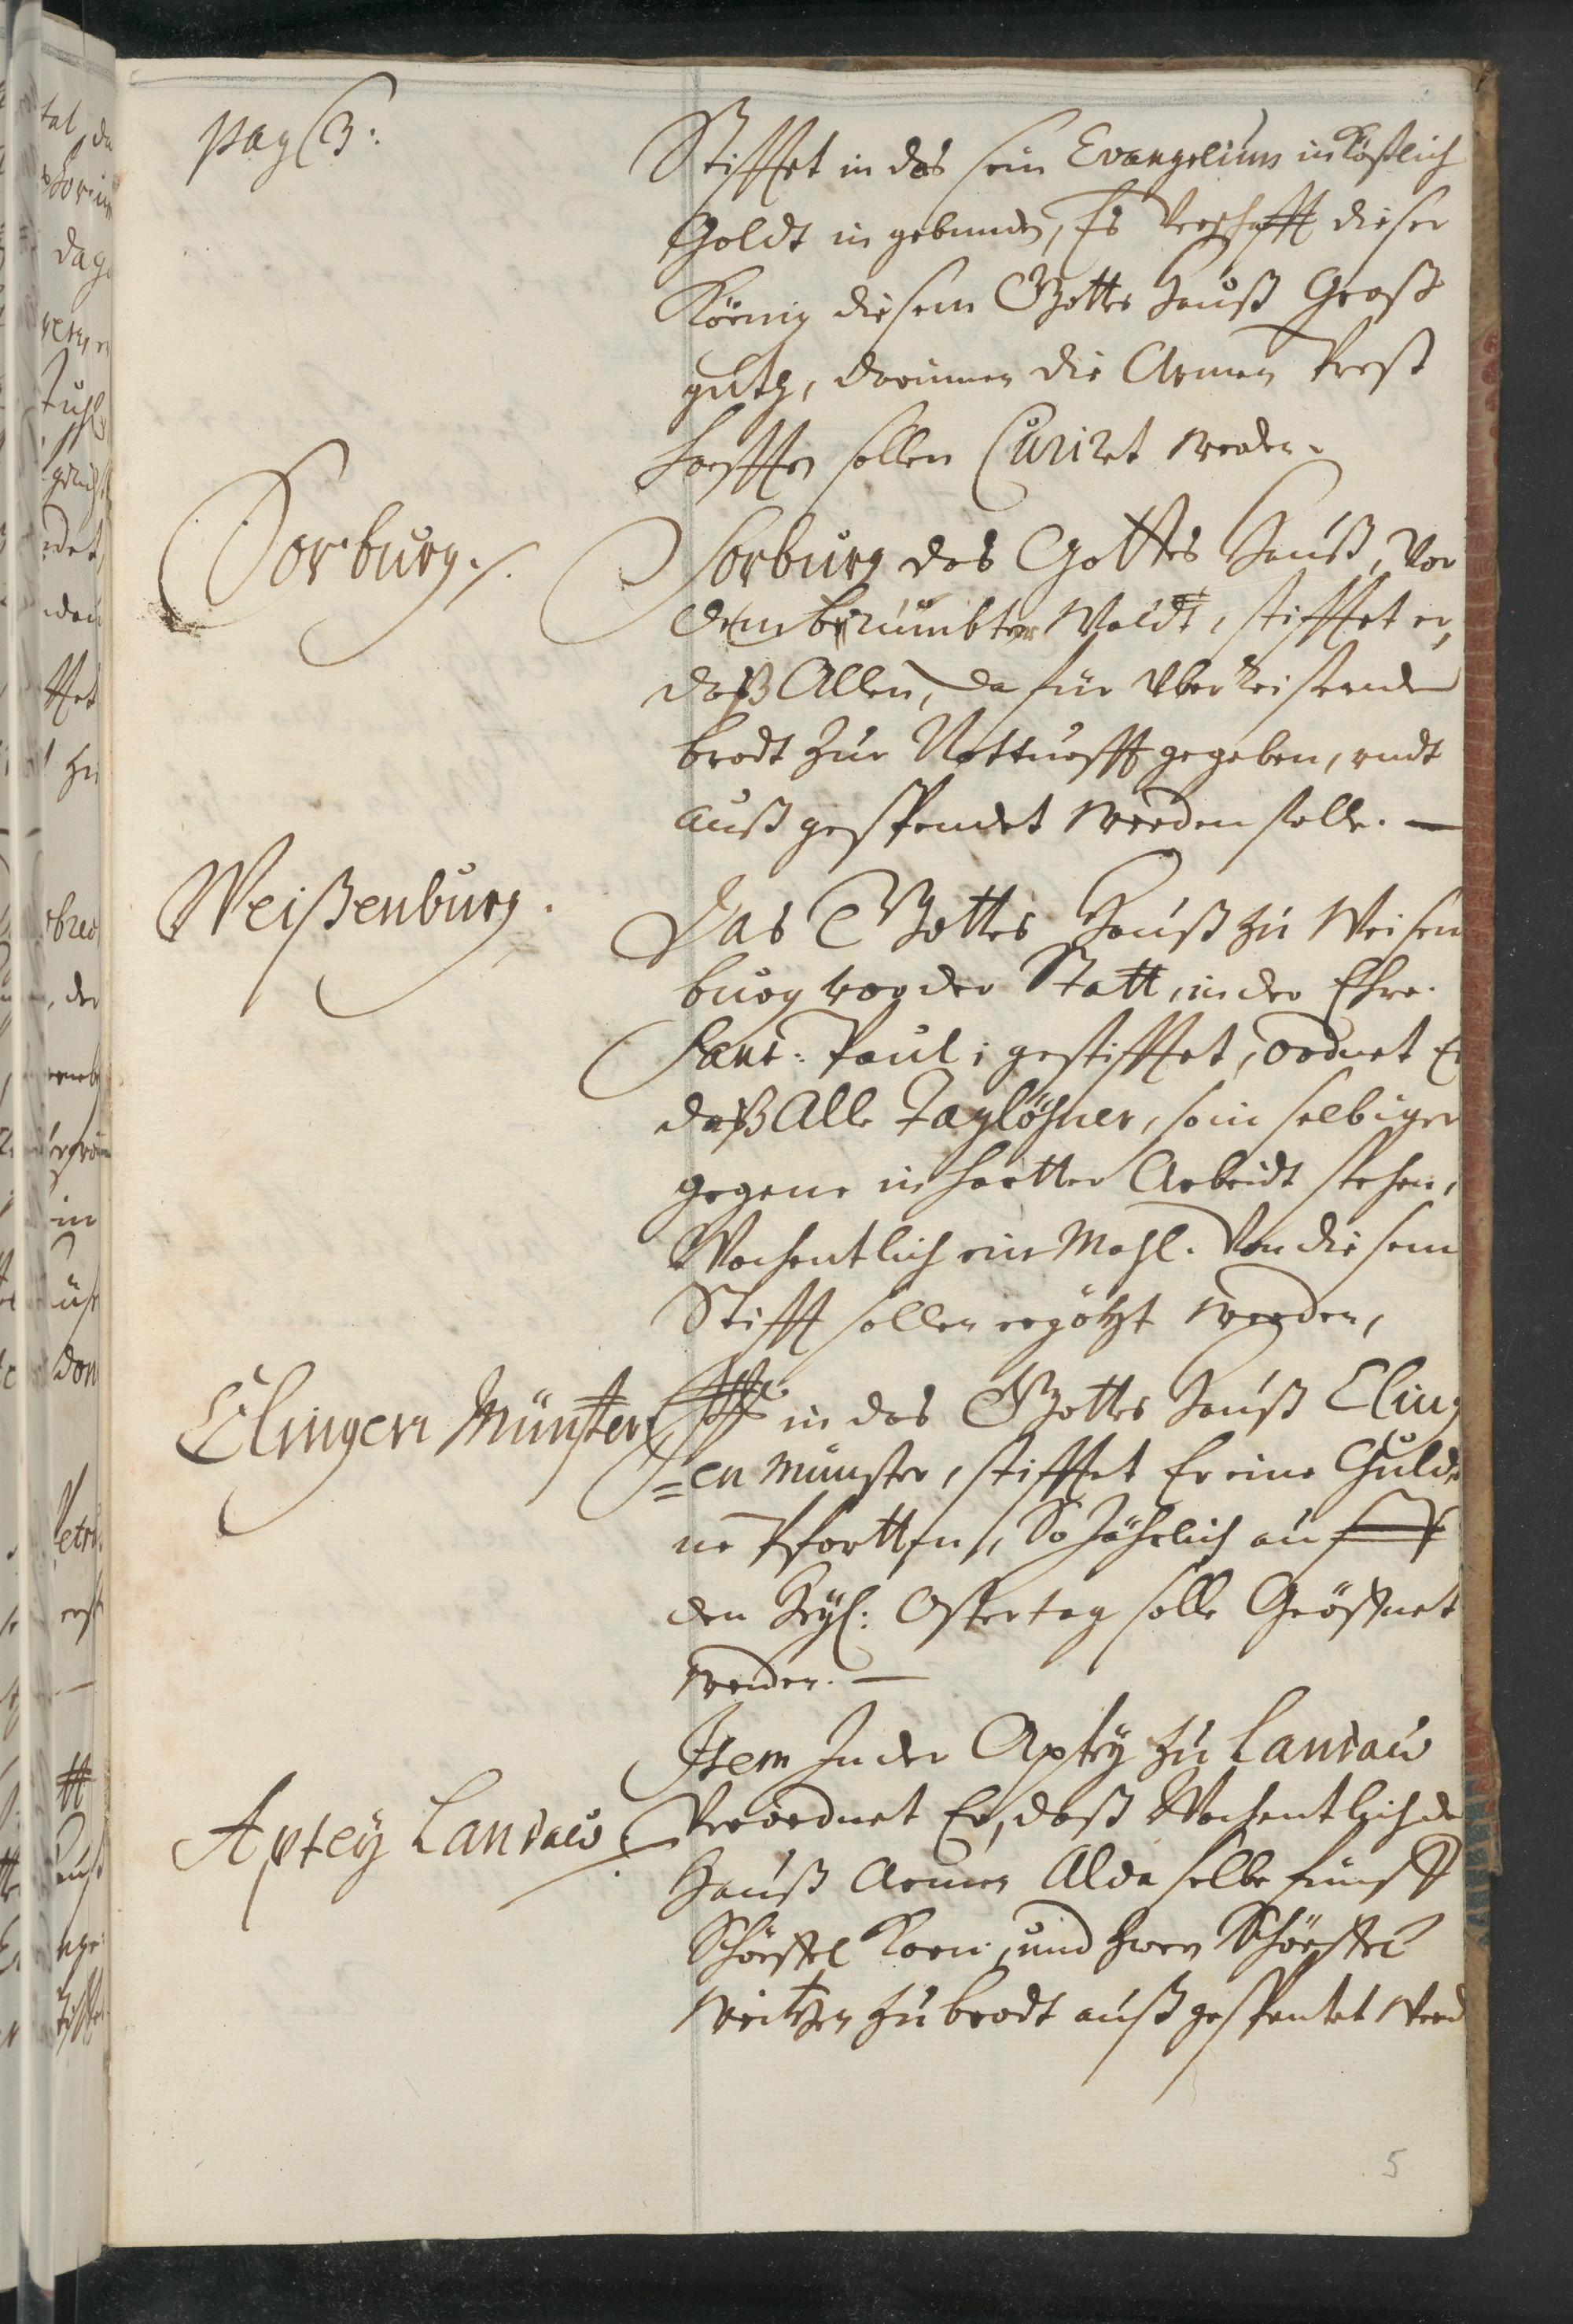 pag 3:
Stifftet in das sein Evangelium in Köstlich
Goldt in gebunden, Es Verschafft dieser
König diesem Gottes Hauß Groß
guth, darinnen die Armen Prest
hafften sollen Curiret werden.
Sorburg.
Sorburg das Gottes Hauß, Vor
dem berümbten Waldt, stifftet er,
daß Allen, da für über reisenden
brodt Zur Notturfft gegeben, undt
auß gespendet werden solle. —
Weißenburg.
Das Gottes Hauß zu Weisen
burg vor der Statt, in der Ehre
Sanct: Pauli gestifftet, ordnet Er
daß Alle Taglöhner, so in selbiger
gegene in hartter Arbeidt stehen,
Wochentlich ein Mahl. Von diesem
Stifft sollen ergötzt werden,
Clingen Münster
in das Gottes Hauß Cling
=en münster, stifftet Er eine Gulde
ne Pfortten, So Jährlich an
den Heyl: Ostertag solle Geöffnet
werden. —
Item In der Aptey zu Landaw
Aptey Landaw.
Verordnet Er, daß Wochentlich de
Hauß Armen Alda selbe fünff
Schöeffel Korn, und zwey Schöeffel
weitzen zu brodt auß gespentet werd
5